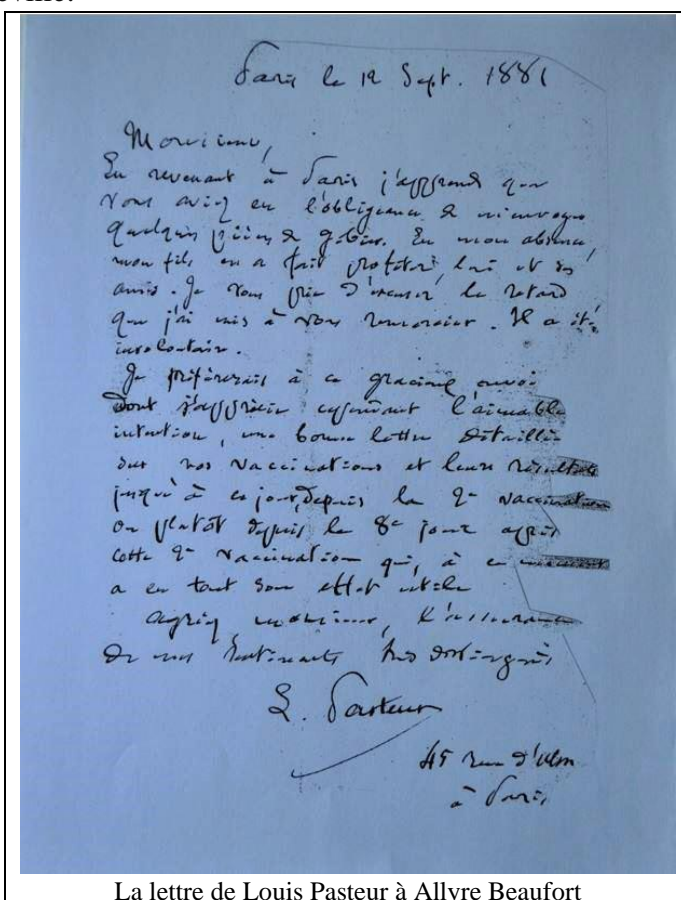 Paris le 12 Sept. 1881
Monsieur,
En revenant à Paris j'apprends que
vous aviez eu l'obligeance de m'envoyer
quelques pièces de gibier. En mon absence,
mon fils en a fait profiter, lui et ses
amis. Je vous prie d'excuser le retard
que j'ai mis à vous remercier. Il a été
involontaire.
Je préfèrerais à ce gracieux envoi
dont j'apprécie cependant l'aimable
intention, une bonne lettre détaillée
sur vos vaccinations et leurs résultats
jusqu'à ce jour, depuis la 2e vaccination
ou plutôt depuis le 8e jour après
cette 2e vaccination qui, à ce moment
a eu tout son effet utile
Agréez monsieur, l'assurance
de mes sentiments très distingués
L. Pasteur
45 rue d'Ulm
à Paris
La lettre de Louis Pasteur à Allyre Beaufort